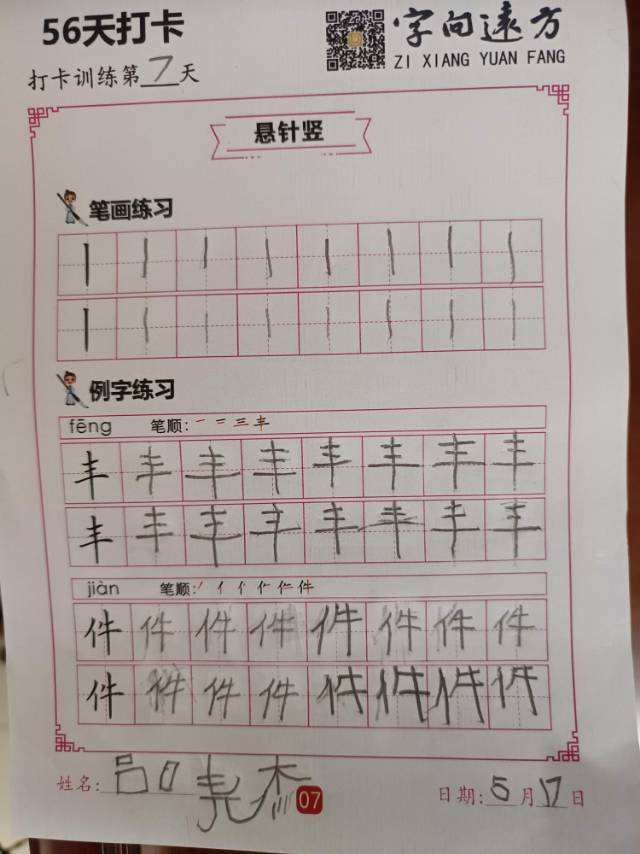 56天打卡
字向远方
ZI XIANG YUAN FANG
打卡训练第7天
悬针竖
笔画练习
丨丨丨丨丨丨丨丨
丨丨丨丨丨丨丨丨
例字练习
fēng 笔顺:一 二 三 丰
丰丰丰丰丰丰丰丰
丰丰丰丰丰丰丰丰
jiàn 笔顺:丿 亻 件
件件件件件件件件
件件件件件件件件
姓名:吕 杰
07
日期:5月17日